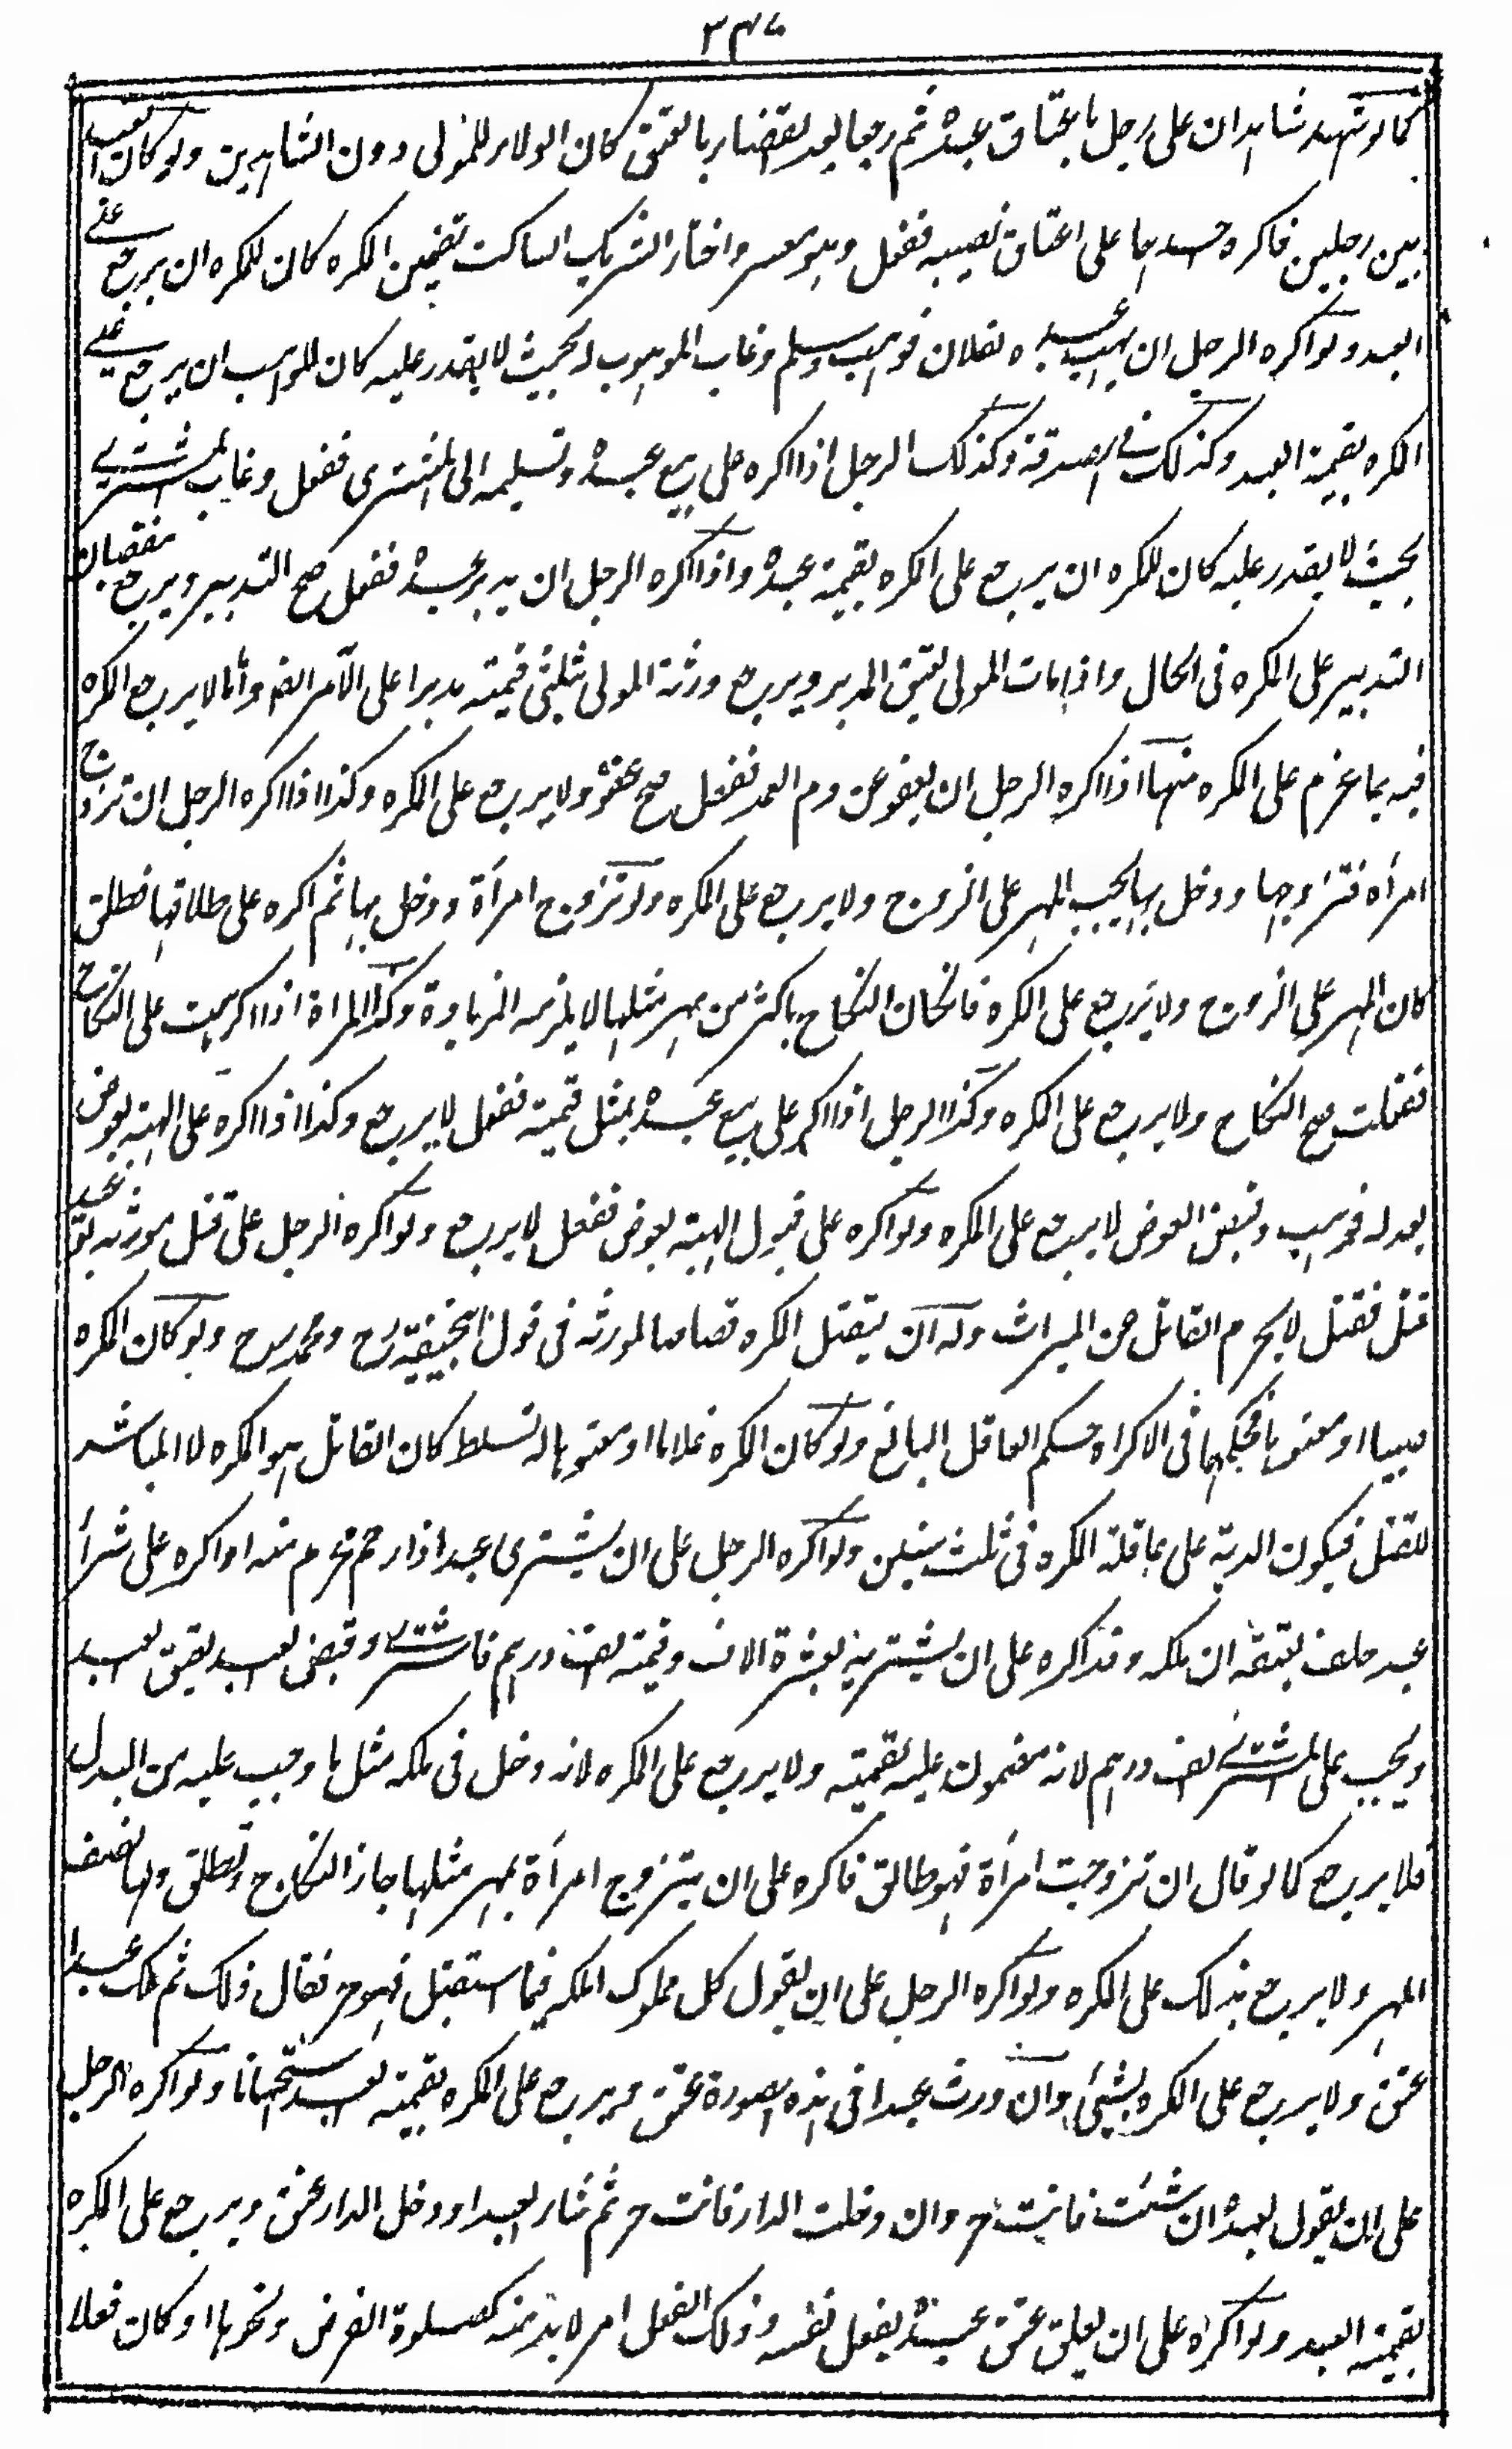 كما لو شهد شاهدان على رجل باعتاق عبده ثم رجعا بعد القضاء بالعتق كان الولاء للمولى دون الشاهدين ولو كان العبد
بين رجلين فاكره احدهما على اعتاق نصيبه ففعل وهو معسر واختار الشريك الساكت تضمين المكره كان للمكره ان يرجع على
العبد ولو اكره الرجل ان يهب عبده لفلان فوهب وسلم وغاب الموهوب له بحيث لا يقدر عليه كان للواهب ان يرجع على
المكره بقيمة العبد وكذلك فى الصدقة وكذلك الرجل اذا اكره على بيع عبده وتسليمه الى المشترى ففعل وغاب المشترى
بحيث لا يقدر عليه كان للمكره ان يرجع على المكره بقيمة عبده واذا اكره الرجل ان يدبر عبده ففعل صح التدبير ويرجع بنقصان
التدبير على المكره فى الحال واذا مات المولى يعتق المدبر ويرجع ورثة المولى بثلثى قيمته مدبرا على الآمر ايضا واما لا يرجع المكره
فيه بما غرم على المكره منها اذا اكره الرجل ان يعفو عن دم العمد ففعل صح عفوه ولا يرجع على المكره وكذا اذا اكره الرجل ان تزوج
امرأه فتزوجها ودخل بها يجب المهر على الزوج ولا يرجع على المكره ولو تزوج امرأة ودخل بها ثم اكره على طلاقها فطلق
كان المهر على الزوج ولا يرجع على المكره فان كان النكاح باكثر من مهر مثلها لا يلزمه الزيادة وكذا المرأة اذا اكرهت على النكاح
ففعلت صح النكاح ولا يرجع على المكره وكذا الرجل اذا اكره على بيع عبده بمثل قيمته ففعل لا يرجع وكذا اذا اكره على الهبة بعوض
يعدله فوهب وقبض العوض لا يرجع على المكره ولو اكره على قبول الهبة بعوض ففعل لا يرجع ولو اكره الرجل على قتل مورثه بوعيد
قتل فقتل لا يحرم القاتل عن الميراث وله ان يقتل المكره قصاصا لمورثه فى قول ابيحنيفة رح ومحمد رح ولو كان المكره
صبيا او معتوها فحكمهما فى الاكراه حكم العاقل البالغ ولو كان المكره غلاما او معتوها له تسلط كان القاتل هو المكره لا المباشر
للقتل فيكون الدية على عاقلة المكره فى ثلث سنين ولو اكره الرجل على ان يشترى عبدا ذا رحم محرم منه او اكره على شراء
عبد حلف بعتقه ان ملكه وقد اكره على ان يشتريه بعشرة الاف وقيمته الف درهم فاشترى وقبض العبد يعتق العبد
ويجب على المشترى الف درهم لانه مضمون عليه بقيمته ولا يرجع على المكره لانه دخل فى ملكه مثل ما وجب عليه من البدل
فلا يرجع كما لو قال ان تزوجت امرأة فهو طالق فاكره على ان يتزوج امرأة بمهر مثلها جاز النكاح وتطلق ولها نصف
المهر ولا يرجع بذلك على المكره ولو اكره الرجل على ان يقول كل مملوك املكه فيما استقبل فهو حر فقال ذلك ثم ملك عبدا
عتق ولا يرجع على المكره بشئ وان ورث عبدا فى هذه الصورة عتق ويرجع على المكره بقيمته العبد استحسانا ولو اكره الرجل
على ان يقول لعبده ان شئت فانت حر وان دخلت الدار فانت حر ثم شاء العبد او دخل الدار عتق ويرجع على المكره
بقيمة العبد ولو اكره على ان يعلق عتق عبده بفعل نفسه وذلك الفعل امر لا بد منه كصلوة الفرض ونحوها او كان فعلا